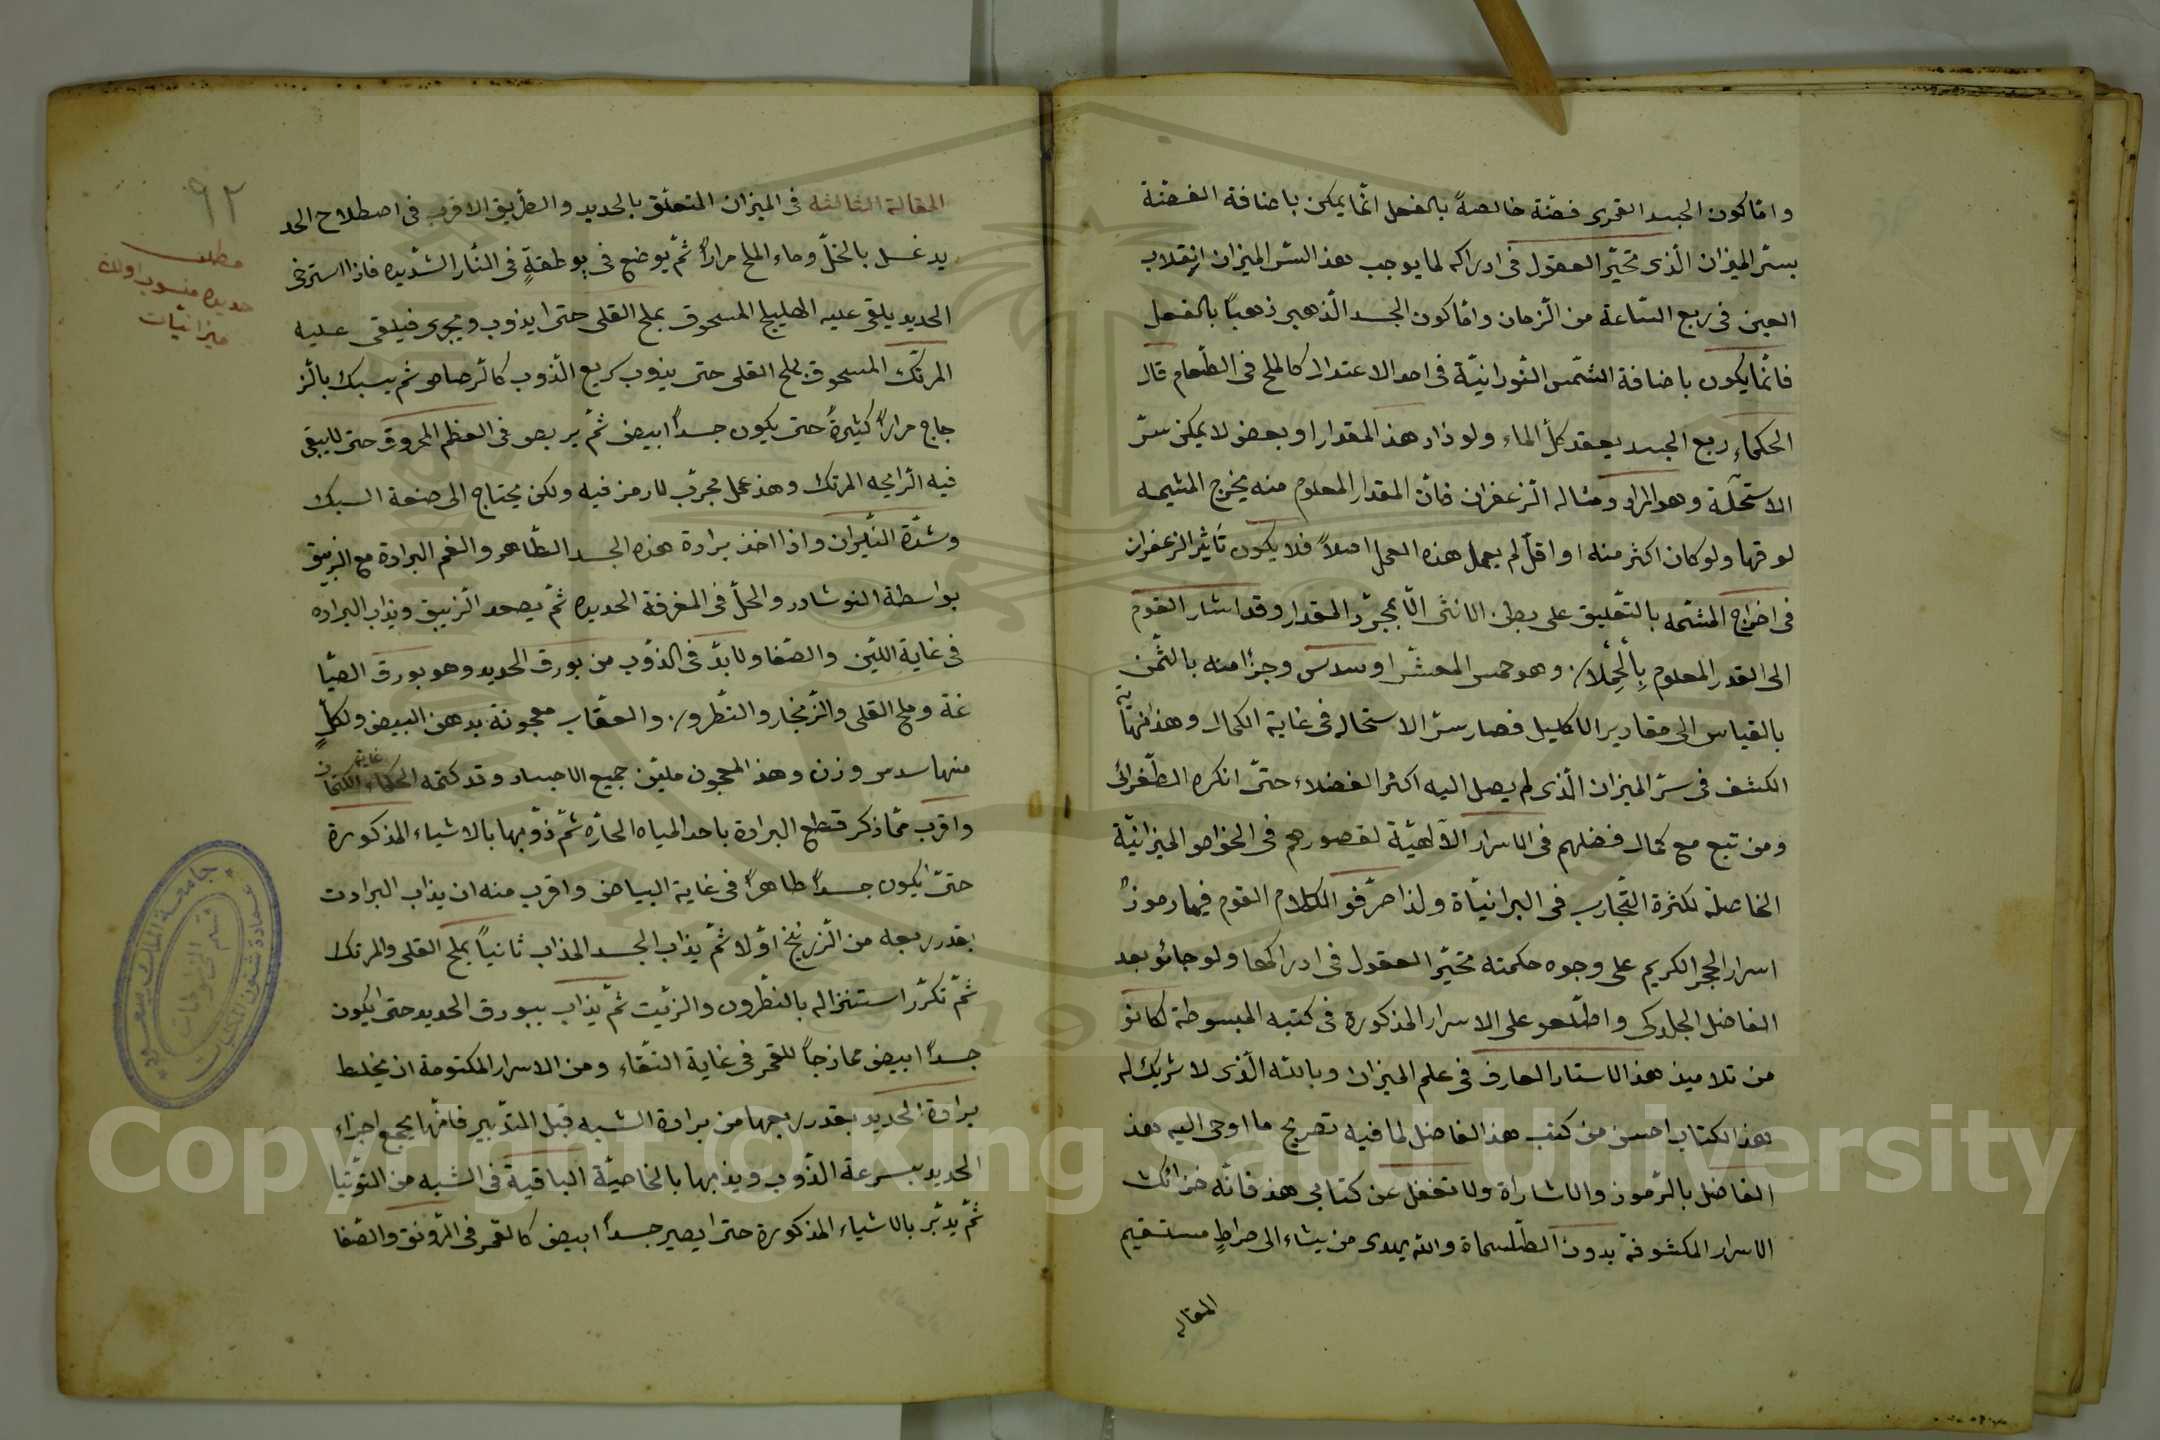 واما كون الجسد القمرى فضة خالصةً بالفعل انما يمكن باضافة الفضّة
بسرّ الميزان الّذى تحيّر العقول فى ادراكه لما يوجب هذا السّر الميزان انقلاب
العين فى ربع السّاعة من الزمان واما كون الجسد الذهبى ذهباً بالفعل
فانّما يكون باضافة الشّمس النّورانيّة فى احد الاعتدال كالملح فى الطّعام قال
الحكماء ربع الجسد يعقد كلّ الماء ولو زاد هذا المقدار او بعض لا يمكن سرّ
الاستحالة وهو المراد ومثاله الزعفران فانّ المقدار المعلوم منه يخرج المشيمه
لوقتها ولو كان اكثر منه او اقلّ لم يعمل هذه العمل اصلاً فلا يكون تأثير الزعفران
فى اخراج المشيمه بالتعليق على بطن الانثى الّا بمجرّد المقدار وقد اشار القوم
الى القدر المعلوم وهو خمس المعشّر او سدس وجزأ منه بالثّمن
بالقياس الى مقادير الاكليل فصار سرّ الاستحاله فى غاية الكمال وهذا نهاية
الكشف فى سرّ الميزان الّذى لم يصل اليه اكثر الفضلاء حتىّ انكره الطّغرائى
ومن تبع مع كمال فضلهم فى الاسرار الآلهيّة لقصورهم فى الخواص الميزانيّة
الخاصلة لكثرة التّجارب فى البرانيّاة ولذا حرّفو الكلام القوم فيها رموزٌ
اسرار الحجر الكريم على وجوه حكمته تحيّر العقول فى ادراكها ولو جائو بعد
الفاضل الجلدكى واطّلعو على الاسرار المذكورة فى كتبه المبسوطة لكانو
من تلاميذ هذا الاستار العارف فى علم الميزان وبالله الّذى لا شريك له
هذا الكتاب احسن من كتب هذا الفاضل لما فيه تصريح ما اوحى اليه هذ
الفاضل بالرّموز والاشاراة ولا تغفل عن كتابى هذ فانّه خزائك
الاسرار المكشوفة بدون الطّلسماة والله يهدى من يشاء الى صراطٍ مستقيم
المقاله
٩٢
مطلب
حديده منسوب اولان
ميزانيّات
المقالة الثالثه فى الميزان المتعلّق بالحديد والطّريق الاقرب فى اصطلاح الحد
يد غسل بالخلّ وماء الملح مراراً ثمّ يوضع فى بوطقةٍ فى النّار الشّديده فاذا استرخى
الحديد يلقى عليه الهليلج المسحوق بملح القلى حتىّ يذوب ويجرى فيلقى عليه
المرتك المسحوق بملح القلى حتى يذوب سريع الذوب كالرّصاص ثم يسبك بالزّ
جاج مراراً كثيرةً حتى يكون جسداً ابيض ثمّ يربص فى العظم المحروق حتى لا يبقى
فيه الرّايحه المرتك وهذ عمل مجرّب لا رمز فيه ولكن يحتاج الى صنعة السبك
وشدّة النّيران واذا اخذ برادة هذه الجسد الطّاهر والغم البرادة مع الزيبق
بواسطة النوشادر والخلّ فى المغرفة الحديده ثمّ يصعد الزيبق ويذاب البراده
فى غاية اللّين والصّفا ولا بدّ فى الذوب من بورق الحديد وهو بورق الصّيا
غة وملح القلى والزّنجار والنّطرون والعقاب معجونة بدهن البيض ولكلٍّ
منها سدس وزن وهذ المعجون مليّن جميع الاجساد وقد كتمه الحكماء غاية الكتمان
واقرب ممّا ذكر قطع البرادة باحد المياه الحارّه ثمّ ذوّبها بالاشياء المذكورة
حتىّ يكون جسداً طاهراً فى غاية البياض واقرب منه ان يذاب البرادت
بقدر ربعه من الزرنيخ اوّلا ثمّ يذاب الجسد المذاب ثانياً بملح القلى والمرتك
ثمّ تكرّر استنزاله بالنّطرون والزّيت ثمّ يذاب ببورق الحديد حتى يكون
جسداً ابيض ممازجاً للقمر فى غاية النّقاء ومن الاسرار المكتومة ان يخلط
برادة الحديد بقدر ربعها من برادة الشبه قبل التدّبير فانّها يجمع اجزاء
الحديد بسرعة الذّوب ويذبها بالخاصيّة الباقية فى الشبه من التوّتيا
ثمّ يدبّر بالاشياء المذكورة حتى يصير جسداً ابيض كالقمر فى الرّونق والصّفا
جامعة الملك سعود
عمادة شئون المكتبات
قسم المخطوطات
Copyright © King Saud University